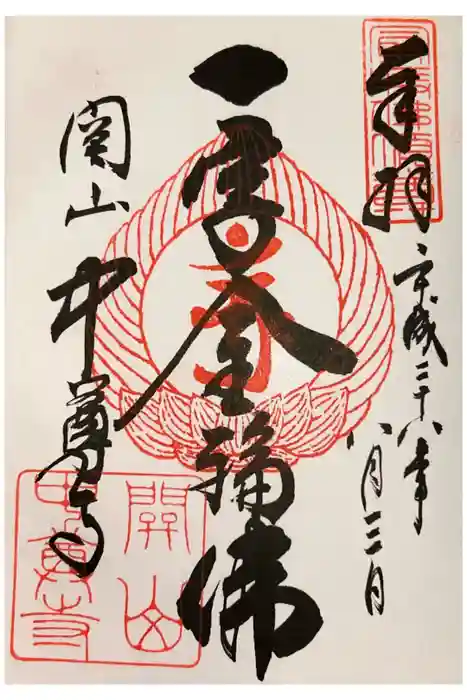 奉拝
平成二十八年
八月三日
一字金輪佛
関山
中尊寺
関山
中尊寺